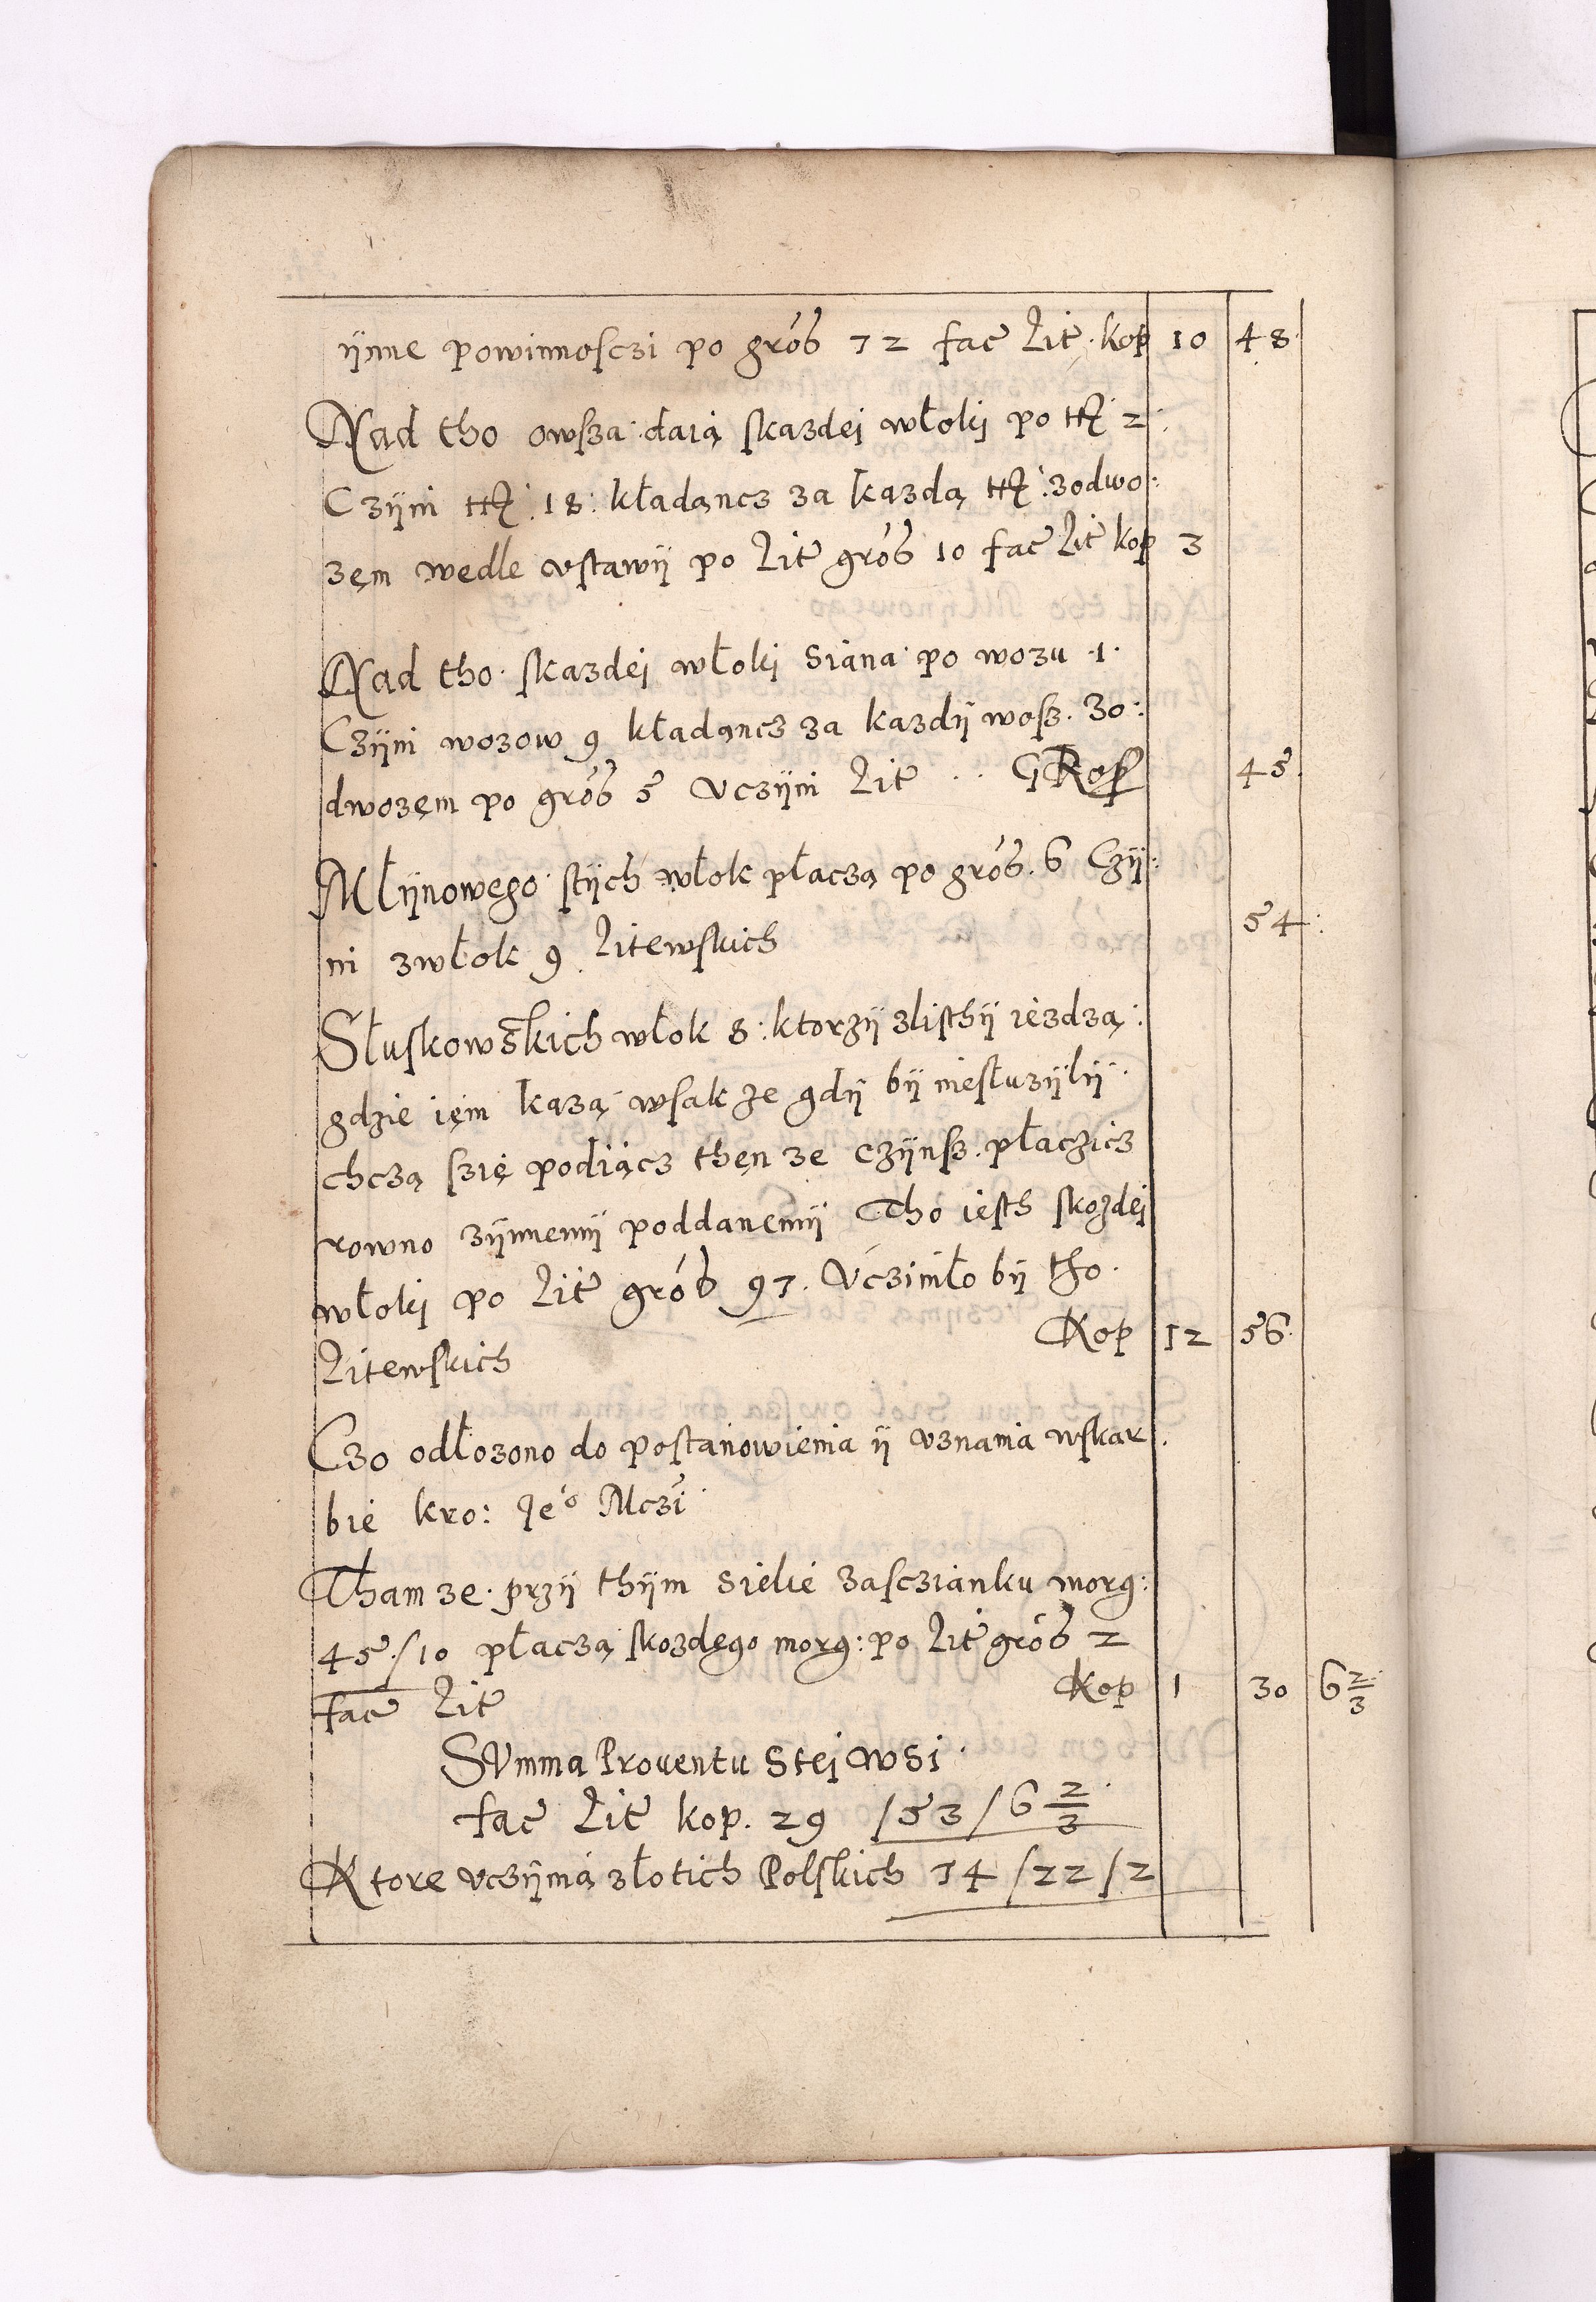 ÿnne powinnosczi po grosz 72 fac Lit. kop 10 48.
Nad tho owsza daią skazdei włoki po 2.
Czÿni 18: kładąncz za kazdą zodwo:
zem wedle vstawÿ po Lit grosz 10 fac Lit kop 3
Nad tho skazdei włoki siana po wozu 1.
Czÿni wozow 9 kładąncz za kazdÿ wosz. zo:
dwozem po grosz 5 vczÿni Lit .. GRosz 45.
Młÿnowego stÿch włok płaczą po grosz. 6 Czÿ:
ni zwłok 9 Litewskich 54:
Słuskowskich włok 8: ktorzÿ zlisthÿ iezdzą:
gdzie ięm kazą wsakze gdÿ bÿ niesłuzÿlÿ
chczą szię podiącz thęn ze czÿnsz. płaczicz
rowno zÿnnemÿ poddanemÿ Tho iesth skozdei
włoki po Lit grosz 97. Vcziniło bÿ tho.
Litewskich Kop 12 56.
Czo odłozono do postanowienia ÿ vznania wskar.
bie kro: Jeo Mczi
Tham ze. przÿ thÿm sielie zasczianku morg:
45/10 płaczą skozdego morg: po Lit grosz 2
fac Lit Kop 1 30 6 2/3
SVmma Prouentu stei wsi.
fac Lit kop. 29 /53/6 2/3
Ktore vczÿnią złotich Polskich 74/22/2